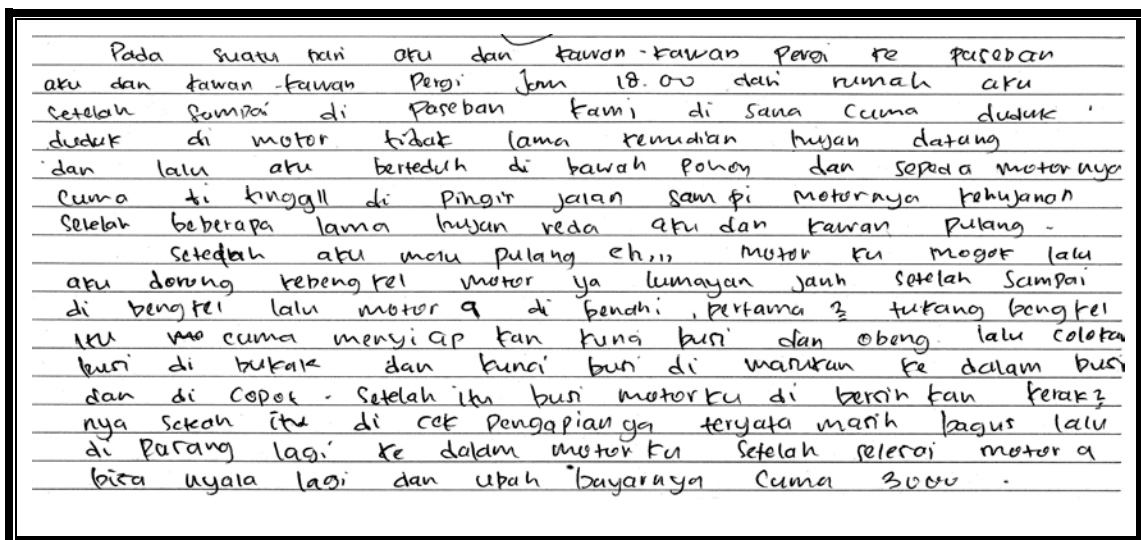 Pada suatu hari aku dan kawan-kawan Pergi ke paseban
aku dan kawan-kawan Pergi Jam 18.00 dari rumah aku
setelah sampai di Paseban kami di sana cuma duduk
duduk di motor tidak lama kemudian hujan datang
dan lalu aku berteduh di bawah pohon dan sepeda motornya
cuma di tinggll di pingir jalan sampi motornya kehujanan
setelah beberapa lama hujan reda aku dan kawan pulang.
setedlah aku mau pulang eh,,, motor ku mogok lalu
aku dorong kebengkel motor ya lumayan jauh setelah sampai
di bengkel lalu motor q di benahi, pertama 2 tukang bengkel
itu cuma menyiap kan kunci busi dan obeng lalu colokan
busi di bukak dan kunci busi di masukan ke dalam busi
dan di copot. Setelah itu busi motorku di bersih kan kerak2
nya setelah itu di cek pengapian ya teryata masih bagus lalu
di pasang lagi ke dalam motor ku setelah selesai motor q
bisa nyala lagi dan upah bayarnya cuma 3000.